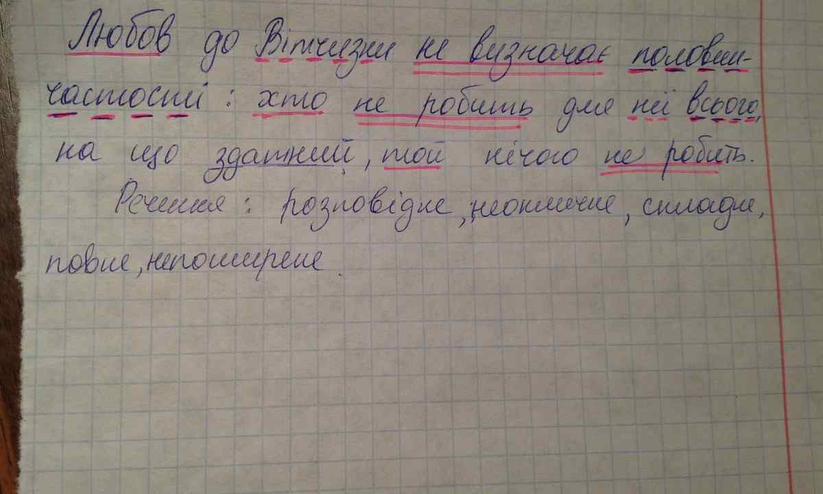 Любов до Вітчизни не визначає половин-
частості: хто не робить для неї всього,
на що здатний, той нічого не робить.
Речення: розповідне, неокличне, складн,
повне, непоширене.